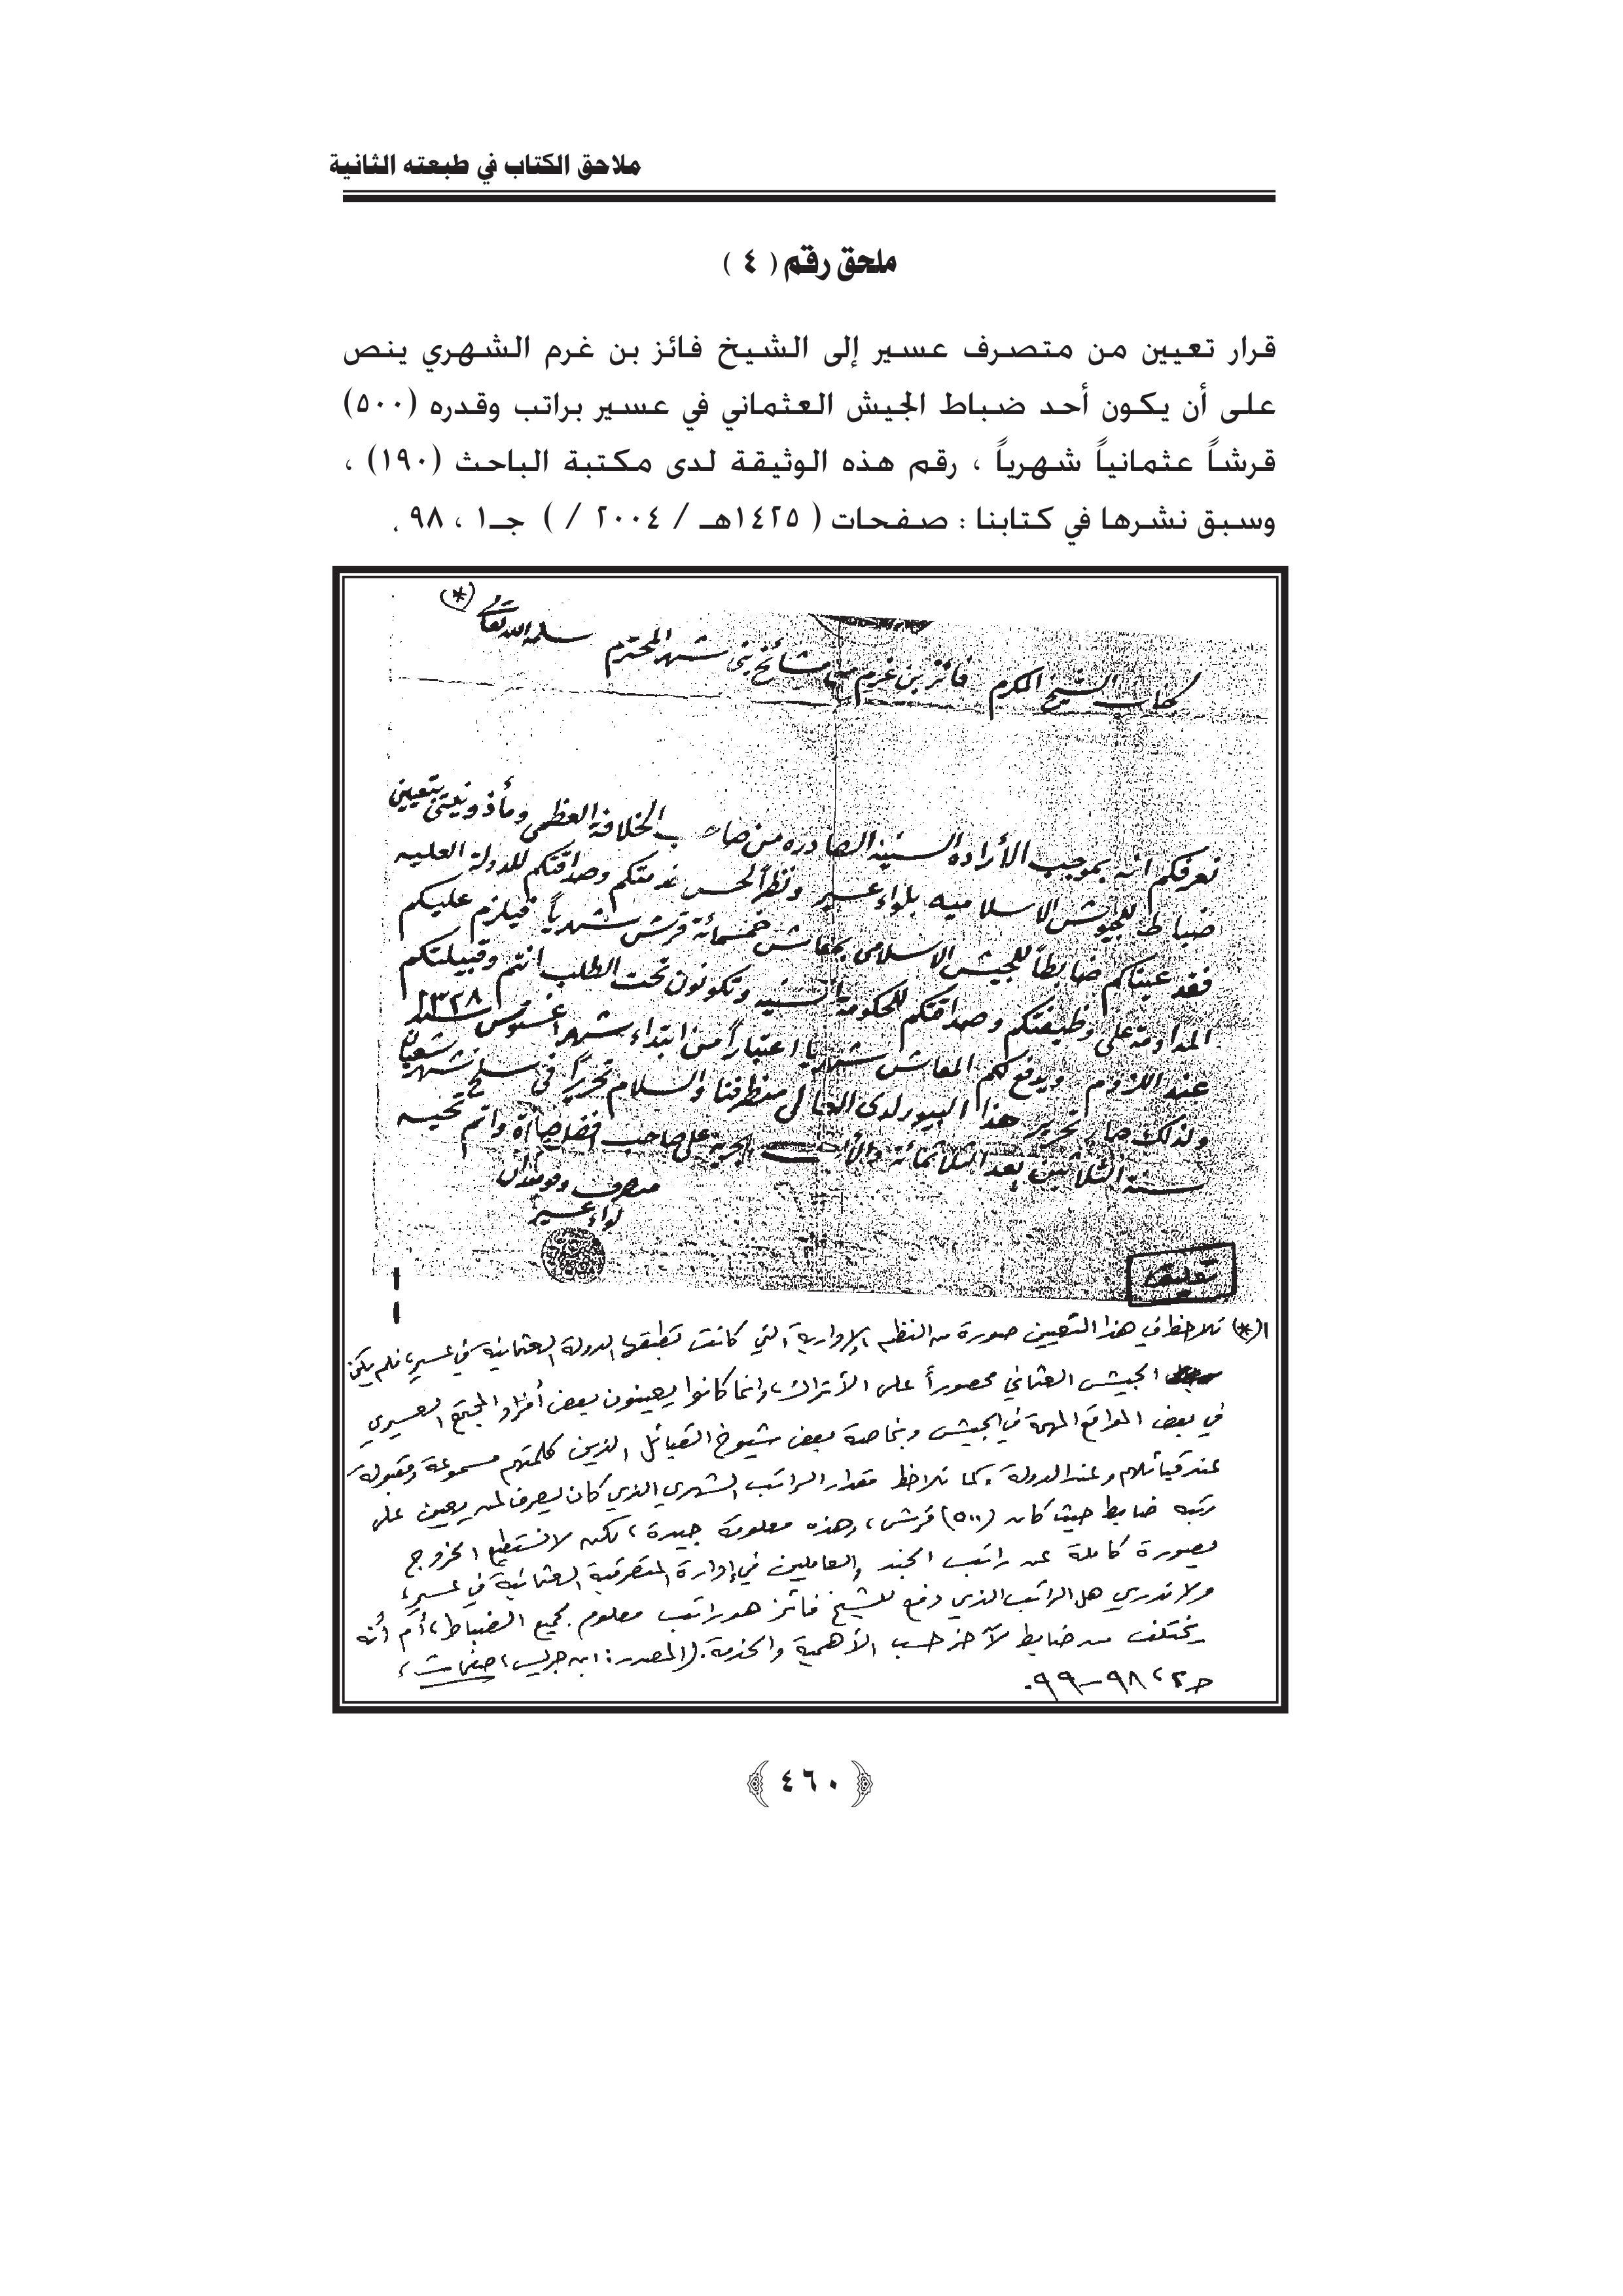 ملاحق الكتاب في طبعته الثانية
ملحق رقم ( ٤ )
قرار تعيين من متصرف عسير إلى الشيخ فائز بن غرم الشهري ينص
على أن يكون أحد ضباط الجيش العثماني في عسير براتب وقدره (٥٠٠)
قرشاً عثمانياً شهرياً ، رقم هذه الوثيقة لدى مكتبة الباحث (١٩٠) ،
وسبق نشرها في كتابنا : صفحات ( ١٤٢٥هـ / ٢٠٠٤ / ) جـ١ ، ٩٨ .
(*)
جناب الشيخ المكرم فائز بن غرم من مشائخ بني شهر المحترم سلمه الله تعالى
نعرفكم انه بموجب الأراده السنيه الصادره من صاحب الخلافة العظمى ومأذونيتي بتعيين
ضباط للجيوش الاسلاميه بلواء عسير ونظراً لحسن خدمتكم وصداقتكم للدولة العليه
فقد عيناكم ضابطاً للجيش الاسلامي بمعاش خمسمائة قرش شهرياً فيلزم عليكم
المداومة على وظيفتكم وصداقتكم للحكومة السنيه وتكونون تحت الطلب انتم وقبيلتكم
عند اللزوم ويدفع لكم المعاش شهرياً اعتباراً من ابتداء شهر اغستوس سنه ١٣٢٨
ولذلك صار تحرير هذا البيورلدى العالي من طرفنا والسلام تحريراً في سلخ شهر شعبان
سنة الثلاثين بعد الثلاثمائة والألف الهجرية على صاحبها افضل صلاة واتم تحيه
متصرف وقومندان
لواء عسير
تعليق
(*) نلاحظ في هذا التعيين صورة من النظم الإدارية التي كانت تطبقها الدولة العثمانية في عسير، فلم يكن
الجيش العثماني محصوراً على الأتراك، وانما كانوا يعينون بعض أفراد المجتمع العسيري
في بعض المواقع المهمة في الجيش وبخاصة بعض شيوخ القبائل الذين كلمتهم مسموعة ومقبولة
عند قبائلهم وعند الدولة . كما نلاحظ مقدار الراتب الشهري الذي كان يصرف لمن يعين على
رتبه ضابط حيث كان (٥٠٠) قرش، وهذه معلومة جيدة ، لكن لا نستطيع الخروج
بصورة كاملة عن راتب الجند والعاملين في إدارة المتصرفية العثمانية في عسير،
ولا ندري هل الراتب الذي دفع للشيخ فائز هو راتب معلوم لجميع الضباط، أم أنه
يختلف من ضابط لآخر حسب الأهمية والخدمة. (المصدر: ابن جريس، صفحات،
جـ٢ ، ٩٨ - ٩٩.
٤٦٠